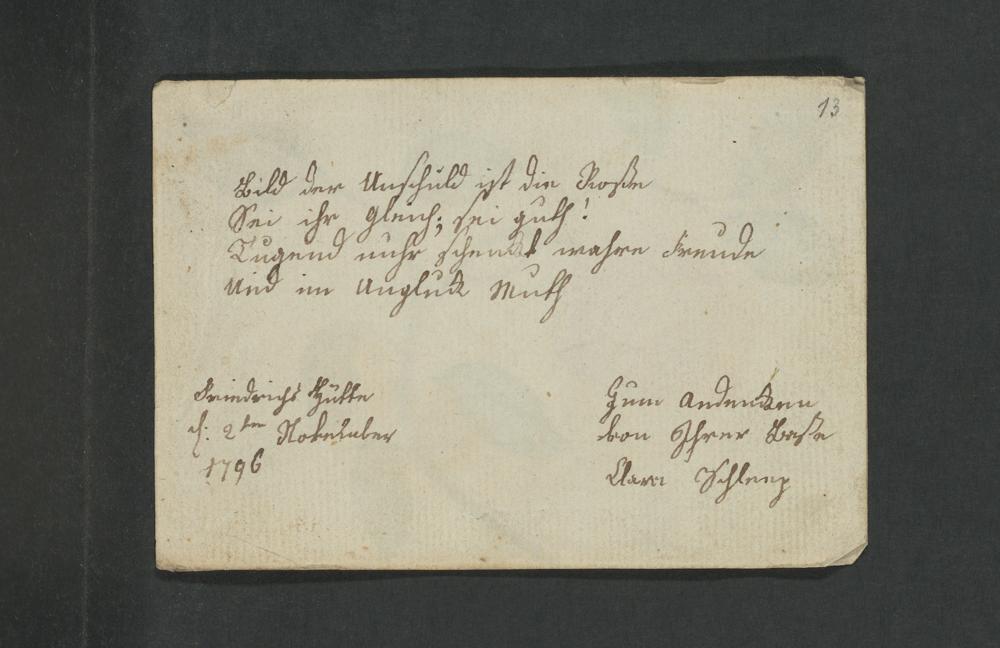 13
Bild der Unschuld ist die Roße
Sei ihr Gleich; sei guth!
Tugend nuhr schenckt wahre Freude
Und im Unglück Muth
Friedrichs Hütte
d: 2ten November
1796
Zum Andencken
von Ihrer Baße
Clara Schleep